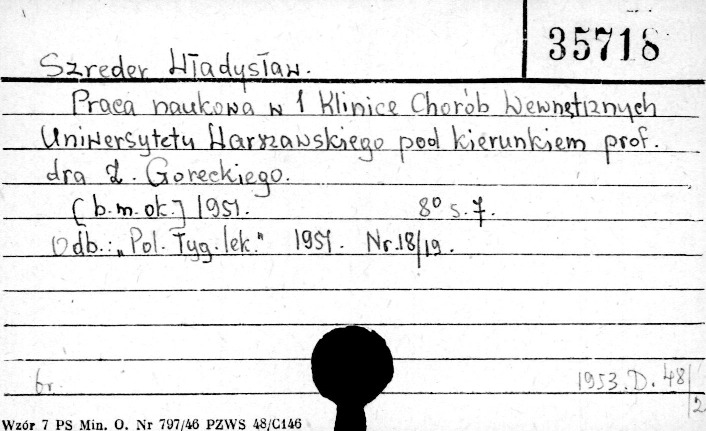 35718
Szreder Władysław.
Praca naukowa w 1 Klinice Chorób Wewnętrznych
Uniwersytetu Warszawskiego pod kierunkiem prof.
dra Z. Goreckiego.
[b.m.ok.] 1951. 8° s. 7.
Odb.: „Pol. Tyg. lek." 1951. Nr. 18/19.
br. 1953. D. 48/2
Wzór 7 PS Min. O. Nr 797/46 PZWS 48/C146